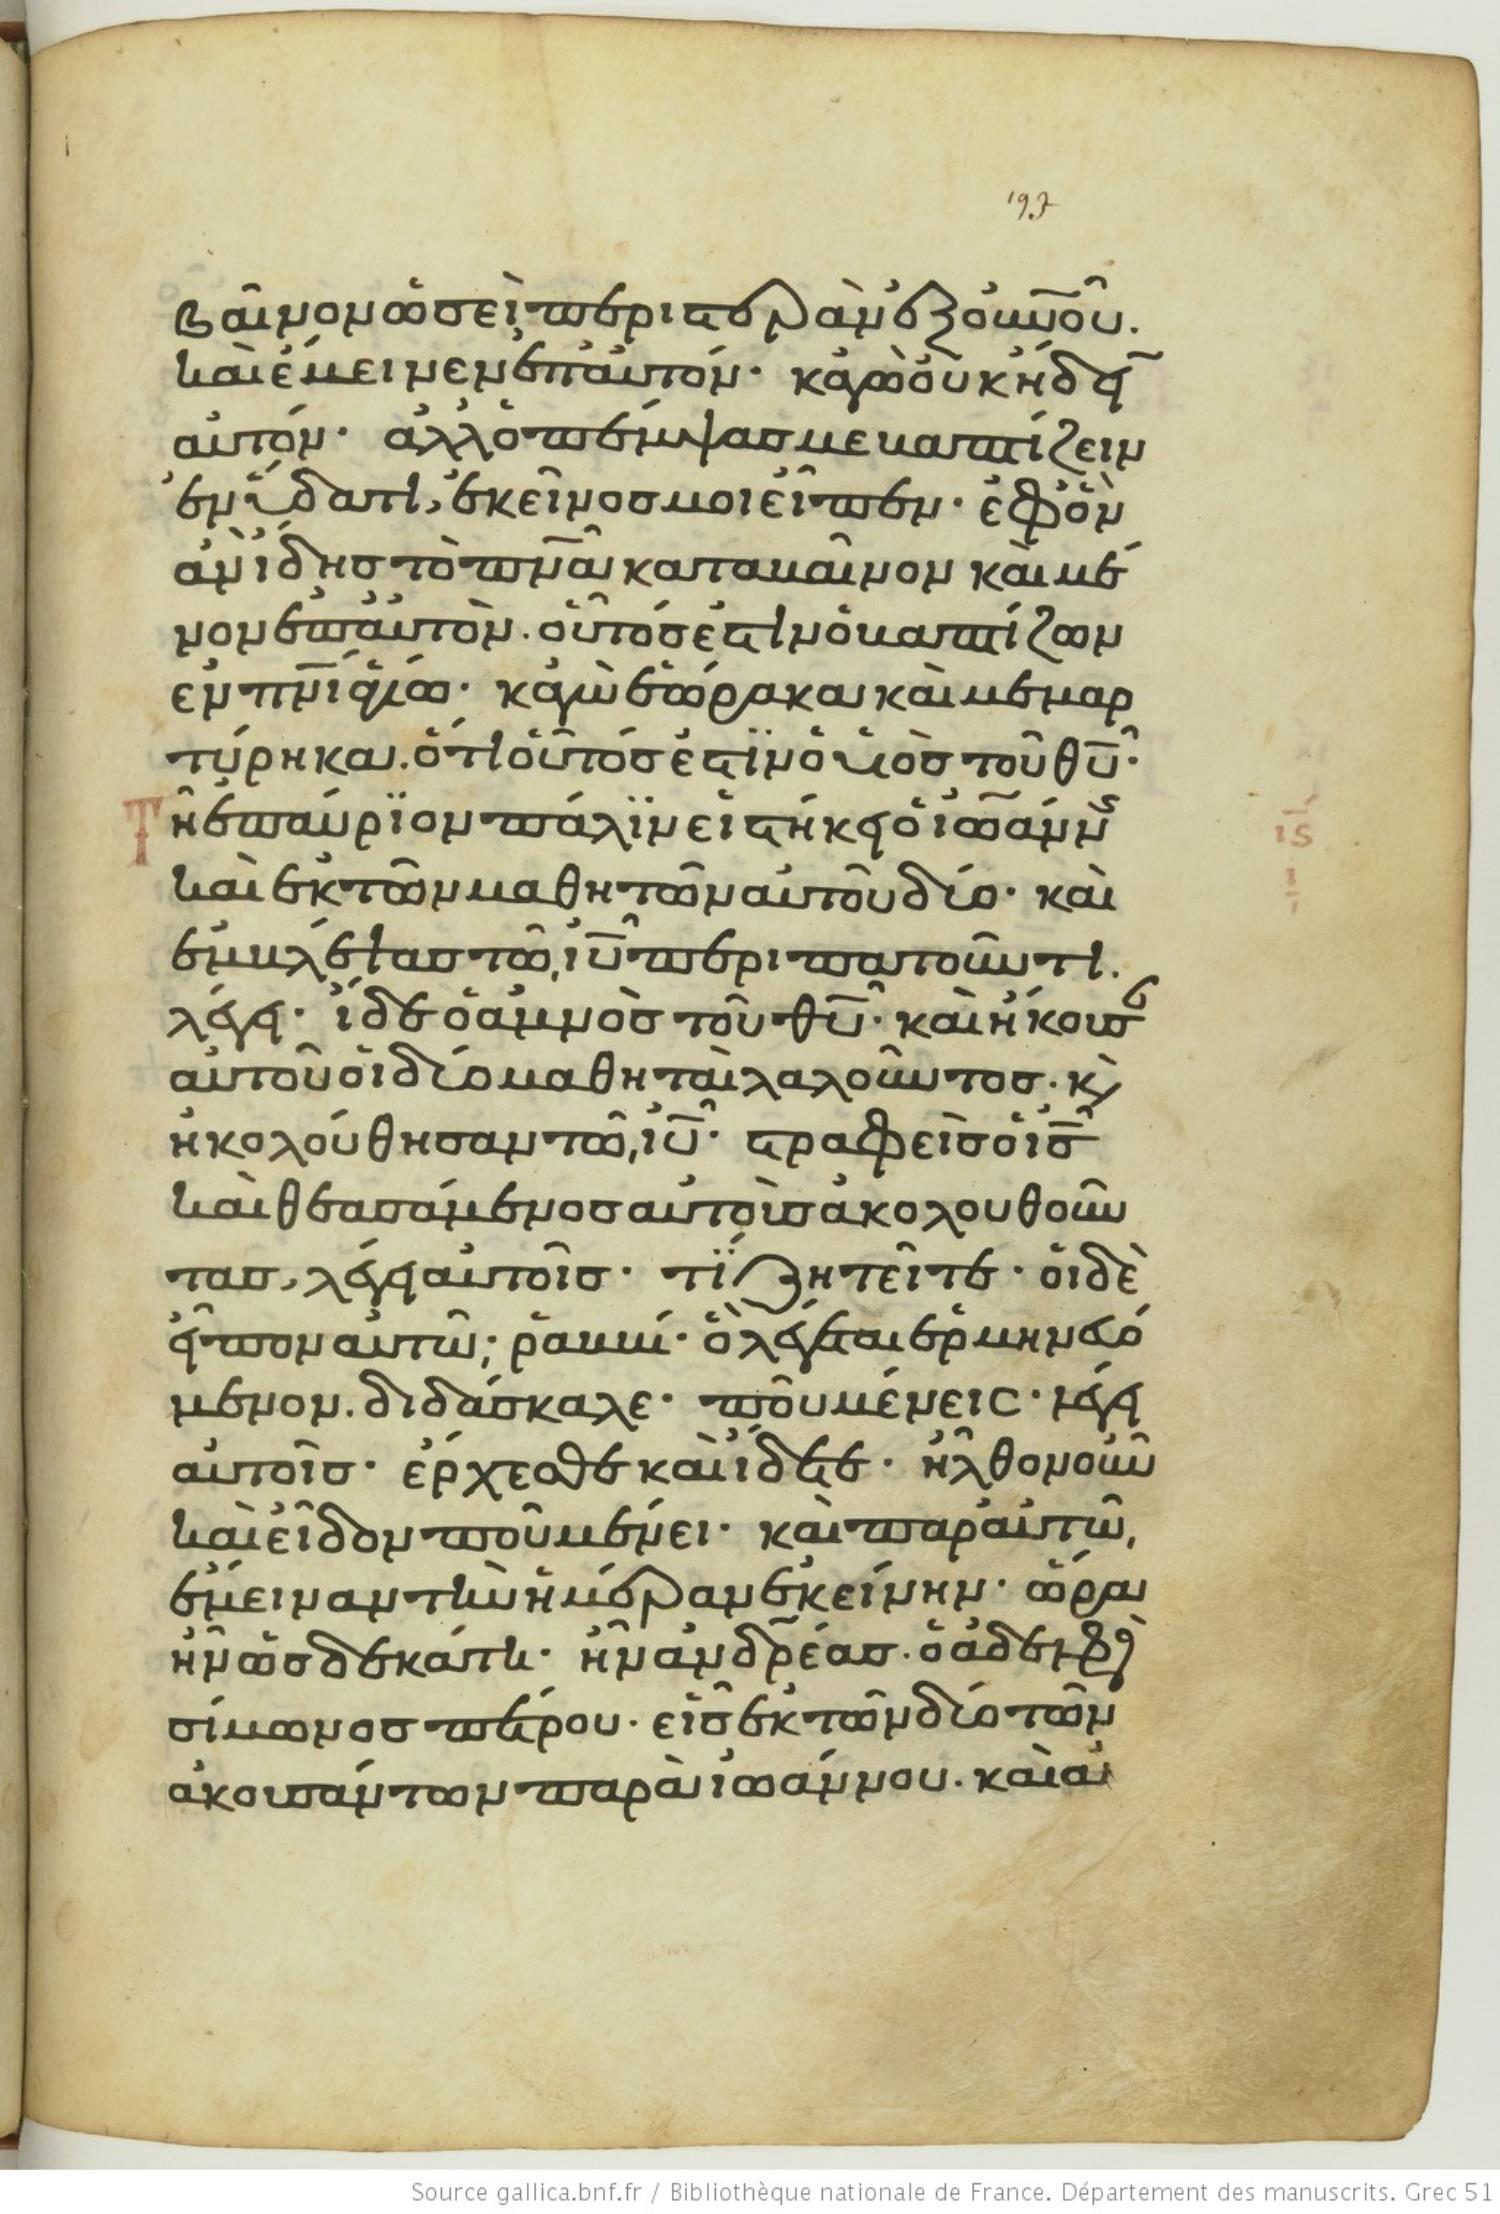 197
βαῖνον ὡσεὶ περιστερὰν ἐξ οὐνοῦ.
καὶ ἔμεινεν ἐπ' αὐτόν· κἀγὼ οὐκ ᾔδειν
αὐτόν· ἀλλ' ὁ πέμψας με βαπτίζειν
ἐν ὕδατι, ἐκεῖνος μοι εἶπεν· ἐφ' ὃν
ἂν ἴδης τὸ πνα καταβαῖνον καὶ μέ
νον ἐπ' αὐτὸν. οὗτός ἐστιν ὁ βαπτίζων
ἐν πνι ἁγίω· κἀγὼ ἑώρακα καὶ μεμαρ
τύρηκα. ὅτι οὗτός ἐστϊν ὁ υἱὸς τοῦ θυ·
Τῆ ἐπαύρϊον πάλϊν εἱστήκει ὁ ἰωάννης
καὶ ἐκ τῶν μαθητῶν αὐτοῦ δύο· καὶ
ἐμβλέψας τῶ, ιυ περιπατοῦντι.
λέγει· ἴδε ὁ ἀμνὸς τοῦ θυ· καὶ ἤκουσ
αὐτοῦ οἱ δύο μαθηταὶ λαλοῦντος. κὶ
ἠκολούθησαν τῶ, ιυ· στραφεὶς ὁ ις
καὶ θεασάμενος αὐτοὺς ἀκολουθοῦν
τας, λέγει αὐτοῖς· τί ζητεῖτε· οἱ δὲ
εἶπον αὐτῶ; ῥαββί· ὃ λέγεται ἑρμηνευό
μενον. διδάσκαλε· ποῦ μένεις· λέγει
αὐτοῖς· ἔρχεσθε καὶ ἴδετε· ἦλθον οὖν
καὶ εἶδον ποῦ μένει· καὶ παρ' αὐτῶ,
ἔμειναν τὴν ἡμέραν ἐκείνην· ὥρα
ἦν ὡς δεκάτη· ἦν ἀνδρέας. ὁ ἀδελφὸ
σίμωνος πέτρου. εἷς ἐκ τῶν δύο τῶν
ἀκουσάντων παρὰ ἰωάννου. καὶ ἀ
ις
ι
Source gallica.bnf.fr / Bibliothèque nationale de France. Département des manuscrits. Grec 51